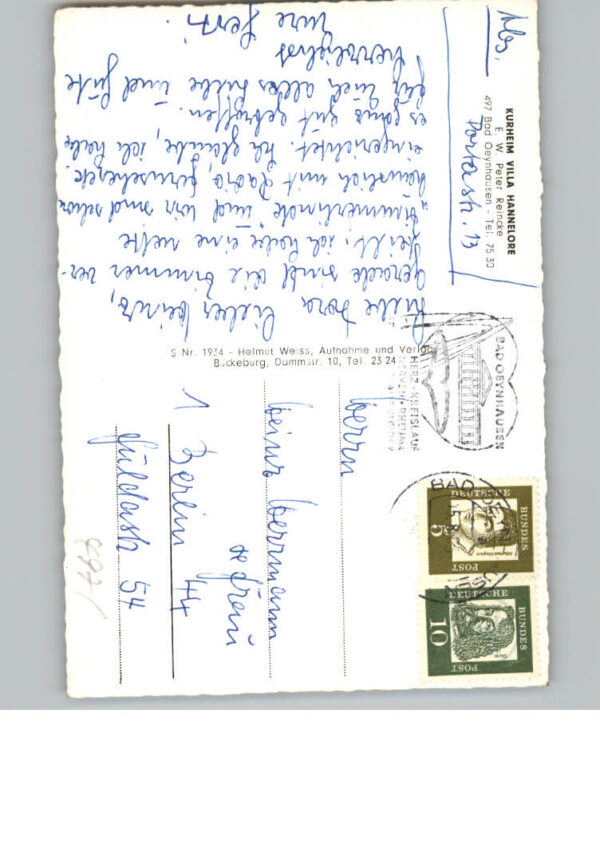 KURHEIM VILLA HANNELORE
E. W. Peter Reincke
497 Bad Oeynhausen - Tel. 75 30
Abs.
Portastr. 13
Liebe Dora, lieber Heinz,
Gerade sind die Zimmer ver-
teilt, ich habe eine nette
"Zimmerlinde" und wir sind schon
häuslich mit Radio, Fernseher etc.
eingerichtet. Ich glaube, ich habe
es ganz gut getroffen.
Für Euch alles Liebe und Gute
herzlichst
Eure
S Nr. 1934 - Helmut Weiss, Aufnahme und Verlag
Bückeburg, Dammstr. 10, Tel. 23 24
BAD OEYNHAUSEN
HERZ-KREISLAUF
NERVEN-RHEUMA
BAD OEYNHAUSEN
DEUTSCHE
BUNDES
POST
5
DEUTSCHE
BUNDES
POST
10
Herrn
Heinz Herrmann
u. Frau
1 Berlin 44
Fuldastr 54